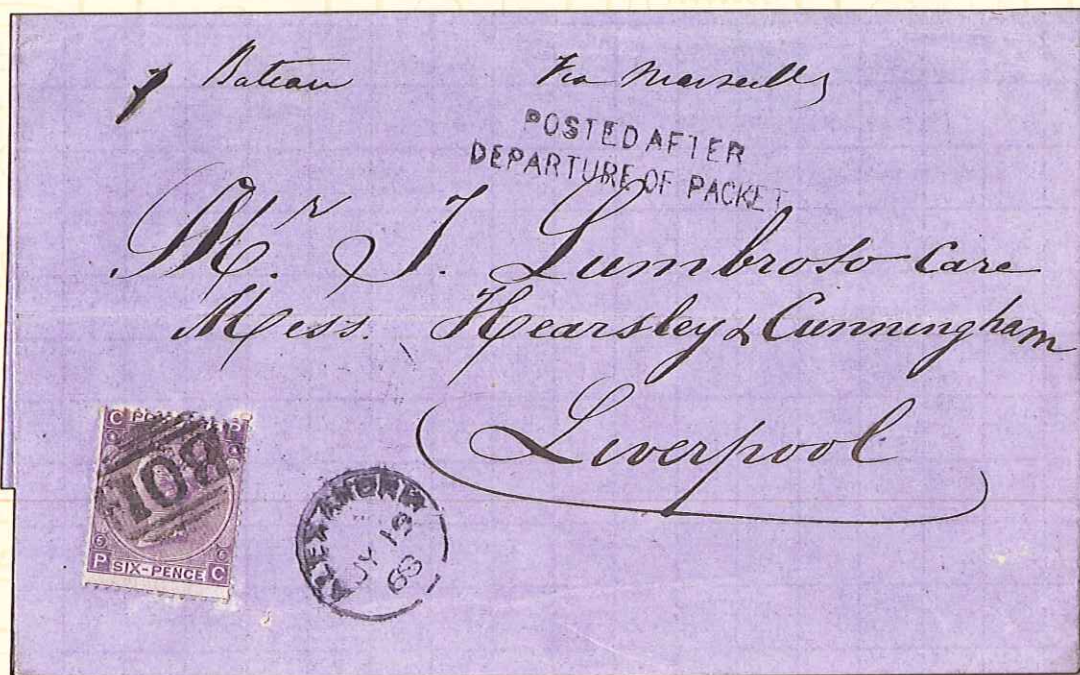 p Bateau Via Marseilles
POSTED AFTER
DEPARTURE OF PACKET
Mr. J. Lumbroso Care
Mess. Hearsley & Cunningham
Liverpool
C PO P
B01
P SIX-PENCE C
ALEXANDRIA
JY 19
68